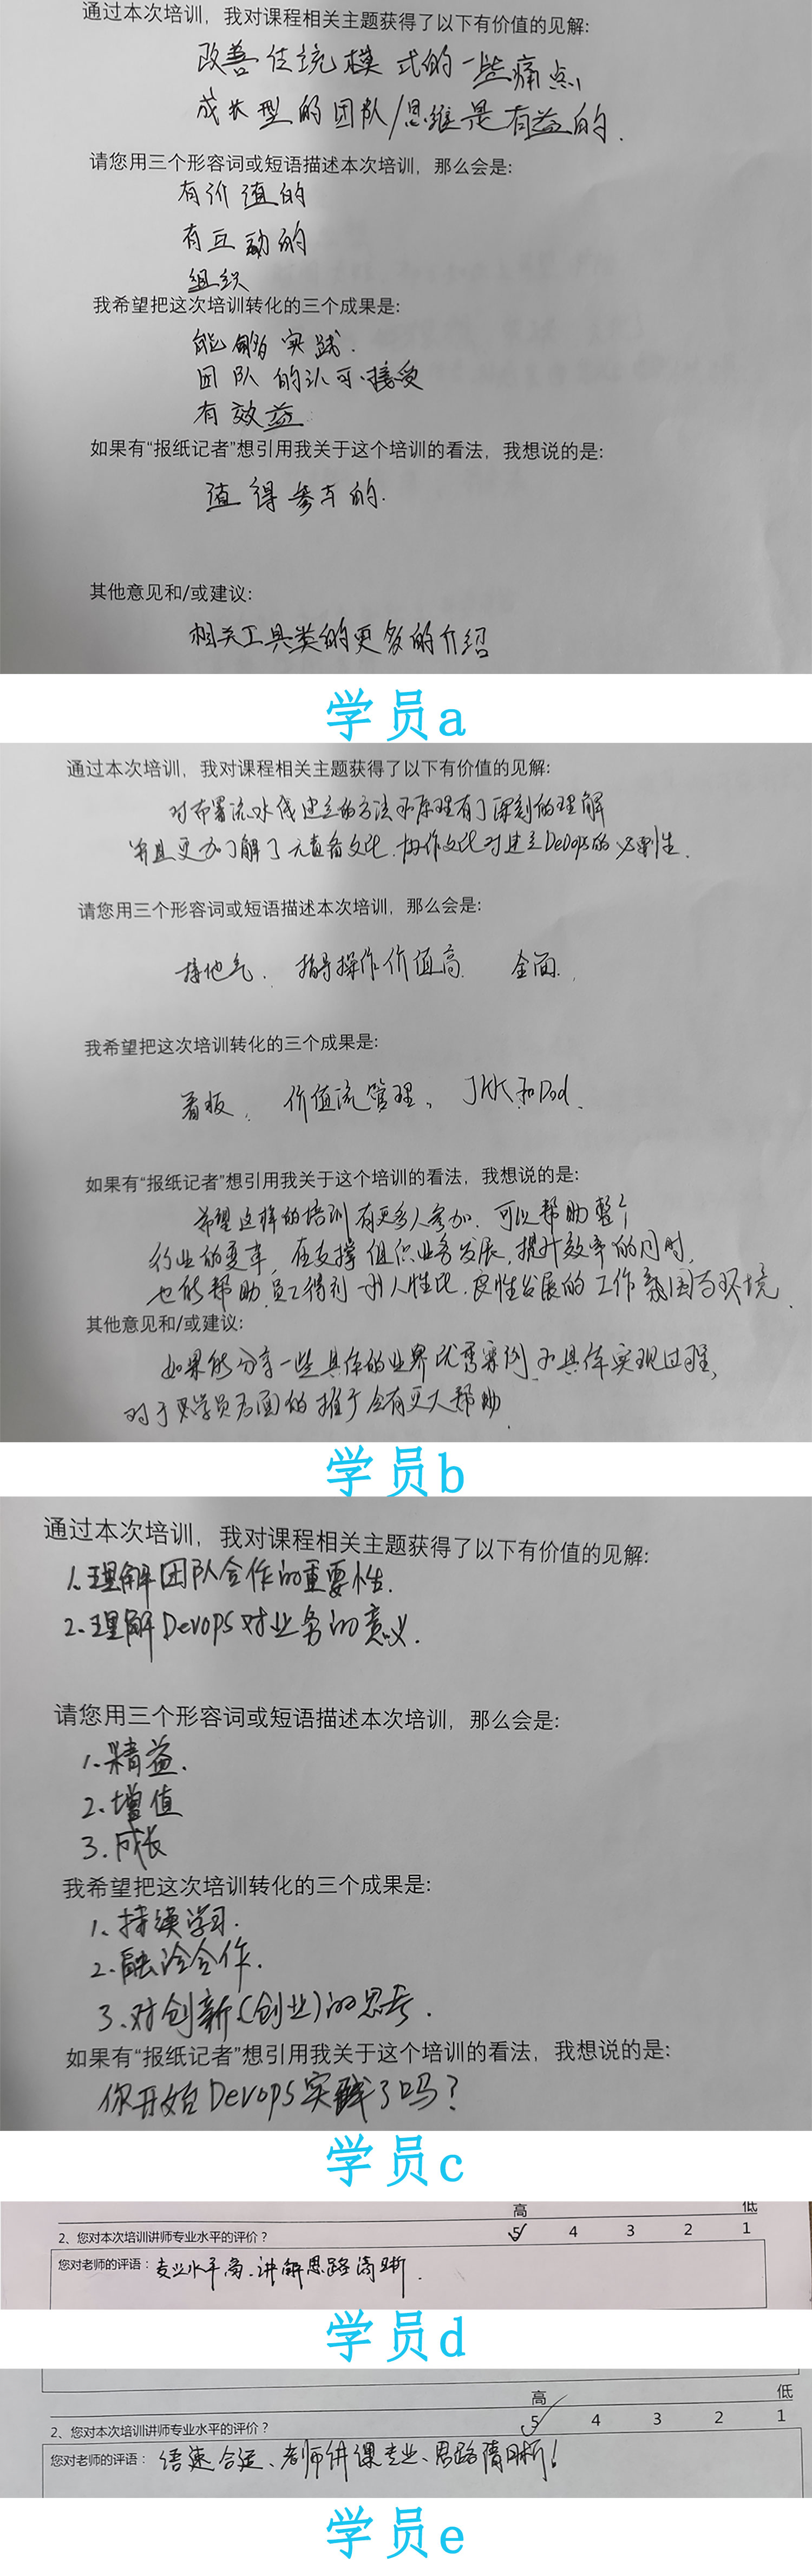 通过本次培训，我对课程相关主题获得了以下有价值的见解:
改善传统模式的一些痛点，
成长型的团队/思维是有益的.
请您用三个形容词或短语描述本次培训，那么会是:
有价值的
有互动的
组织
我希望把这次培训转化的三个成果是:
能够实践.
团队的认可、接受
有效益
如果有“报纸记者”想引用我关于这个培训的看法，我想说的是:
值得参与的.
其他意见和/或建议:
相关工具类的更多的介绍
学员a
通过本次培训，我对课程相关主题获得了以下有价值的见解:
对布署流水线建立的方法和原理有了深刻的理解
并且更加了解了无责备文化.协作文化对建立DevOps的必要性.
请您用三个形容词或短语描述本次培训，那么会是:
接地气. 指导操作价值高 全面.
我希望把这次培训转化的三个成果是:
看板、 价值流管理、 和DoD.
如果有“报纸记者”想引用我关于这个培训的看法，我想说的是:
希望这样的培训有更多人参加.可以帮助整个
行业的变革，在支撑组织业务发展，提升效率的同时，
也能帮助员工得到一个人性化、良性发展的工作氛围与环境.
其他意见和/或建议:
如果能分享一些具体的业界优秀案例和具体实现过程，
对于学员后面的推广会有更大帮助.
学员b
通过本次培训，我对课程相关主题获得了以下有价值的见解:
1.理解团队合作的重要性.
2.理解Devops对业务的意义.
请您用三个形容词或短语描述本次培训，那么会是:
1.精益.
2.增值
3.成长
我希望把这次培训转化的三个成果是:
1.持续学习.
2.融洽合作.
3.对创新(创业)的思考.
如果有“报纸记者”想引用我关于这个培训的看法，我想说的是:
你开始Devops实践了吗?
学员c
高 低
2、您对本次培训讲师专业水平的评价？ 5 4 3 2 1
您对老师的评语：专业水平高、讲解思路清晰.
学员d
高 低
2、您对本次培训讲师专业水平的评价？ 5 4 3 2 1
您对老师的评语：语速合适、老师讲课专业、思路清晰!
学员e